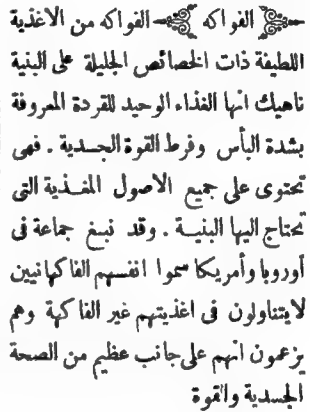 الفواكه الفواكه من الاغذية
اللطيفة ذات الخصائص الجليلة على البنية
ناهيك انها الغذاء الوحيد للقردة المعروفة
بشدة البأس وفرط القوة الجسدية . فهى
تحتوى على جميع الاصول المغذية التى
تحتاج اليها البنية . وقد نبغ جماعة فى
أوروبا وأمريكا سموا انفسهم الفاكهانيين
لايتناولون فى اغذيتهم غير الفاكهة وهم
يزعمون انهم على جانب عظيم من الصحة
الجسدية والقوة